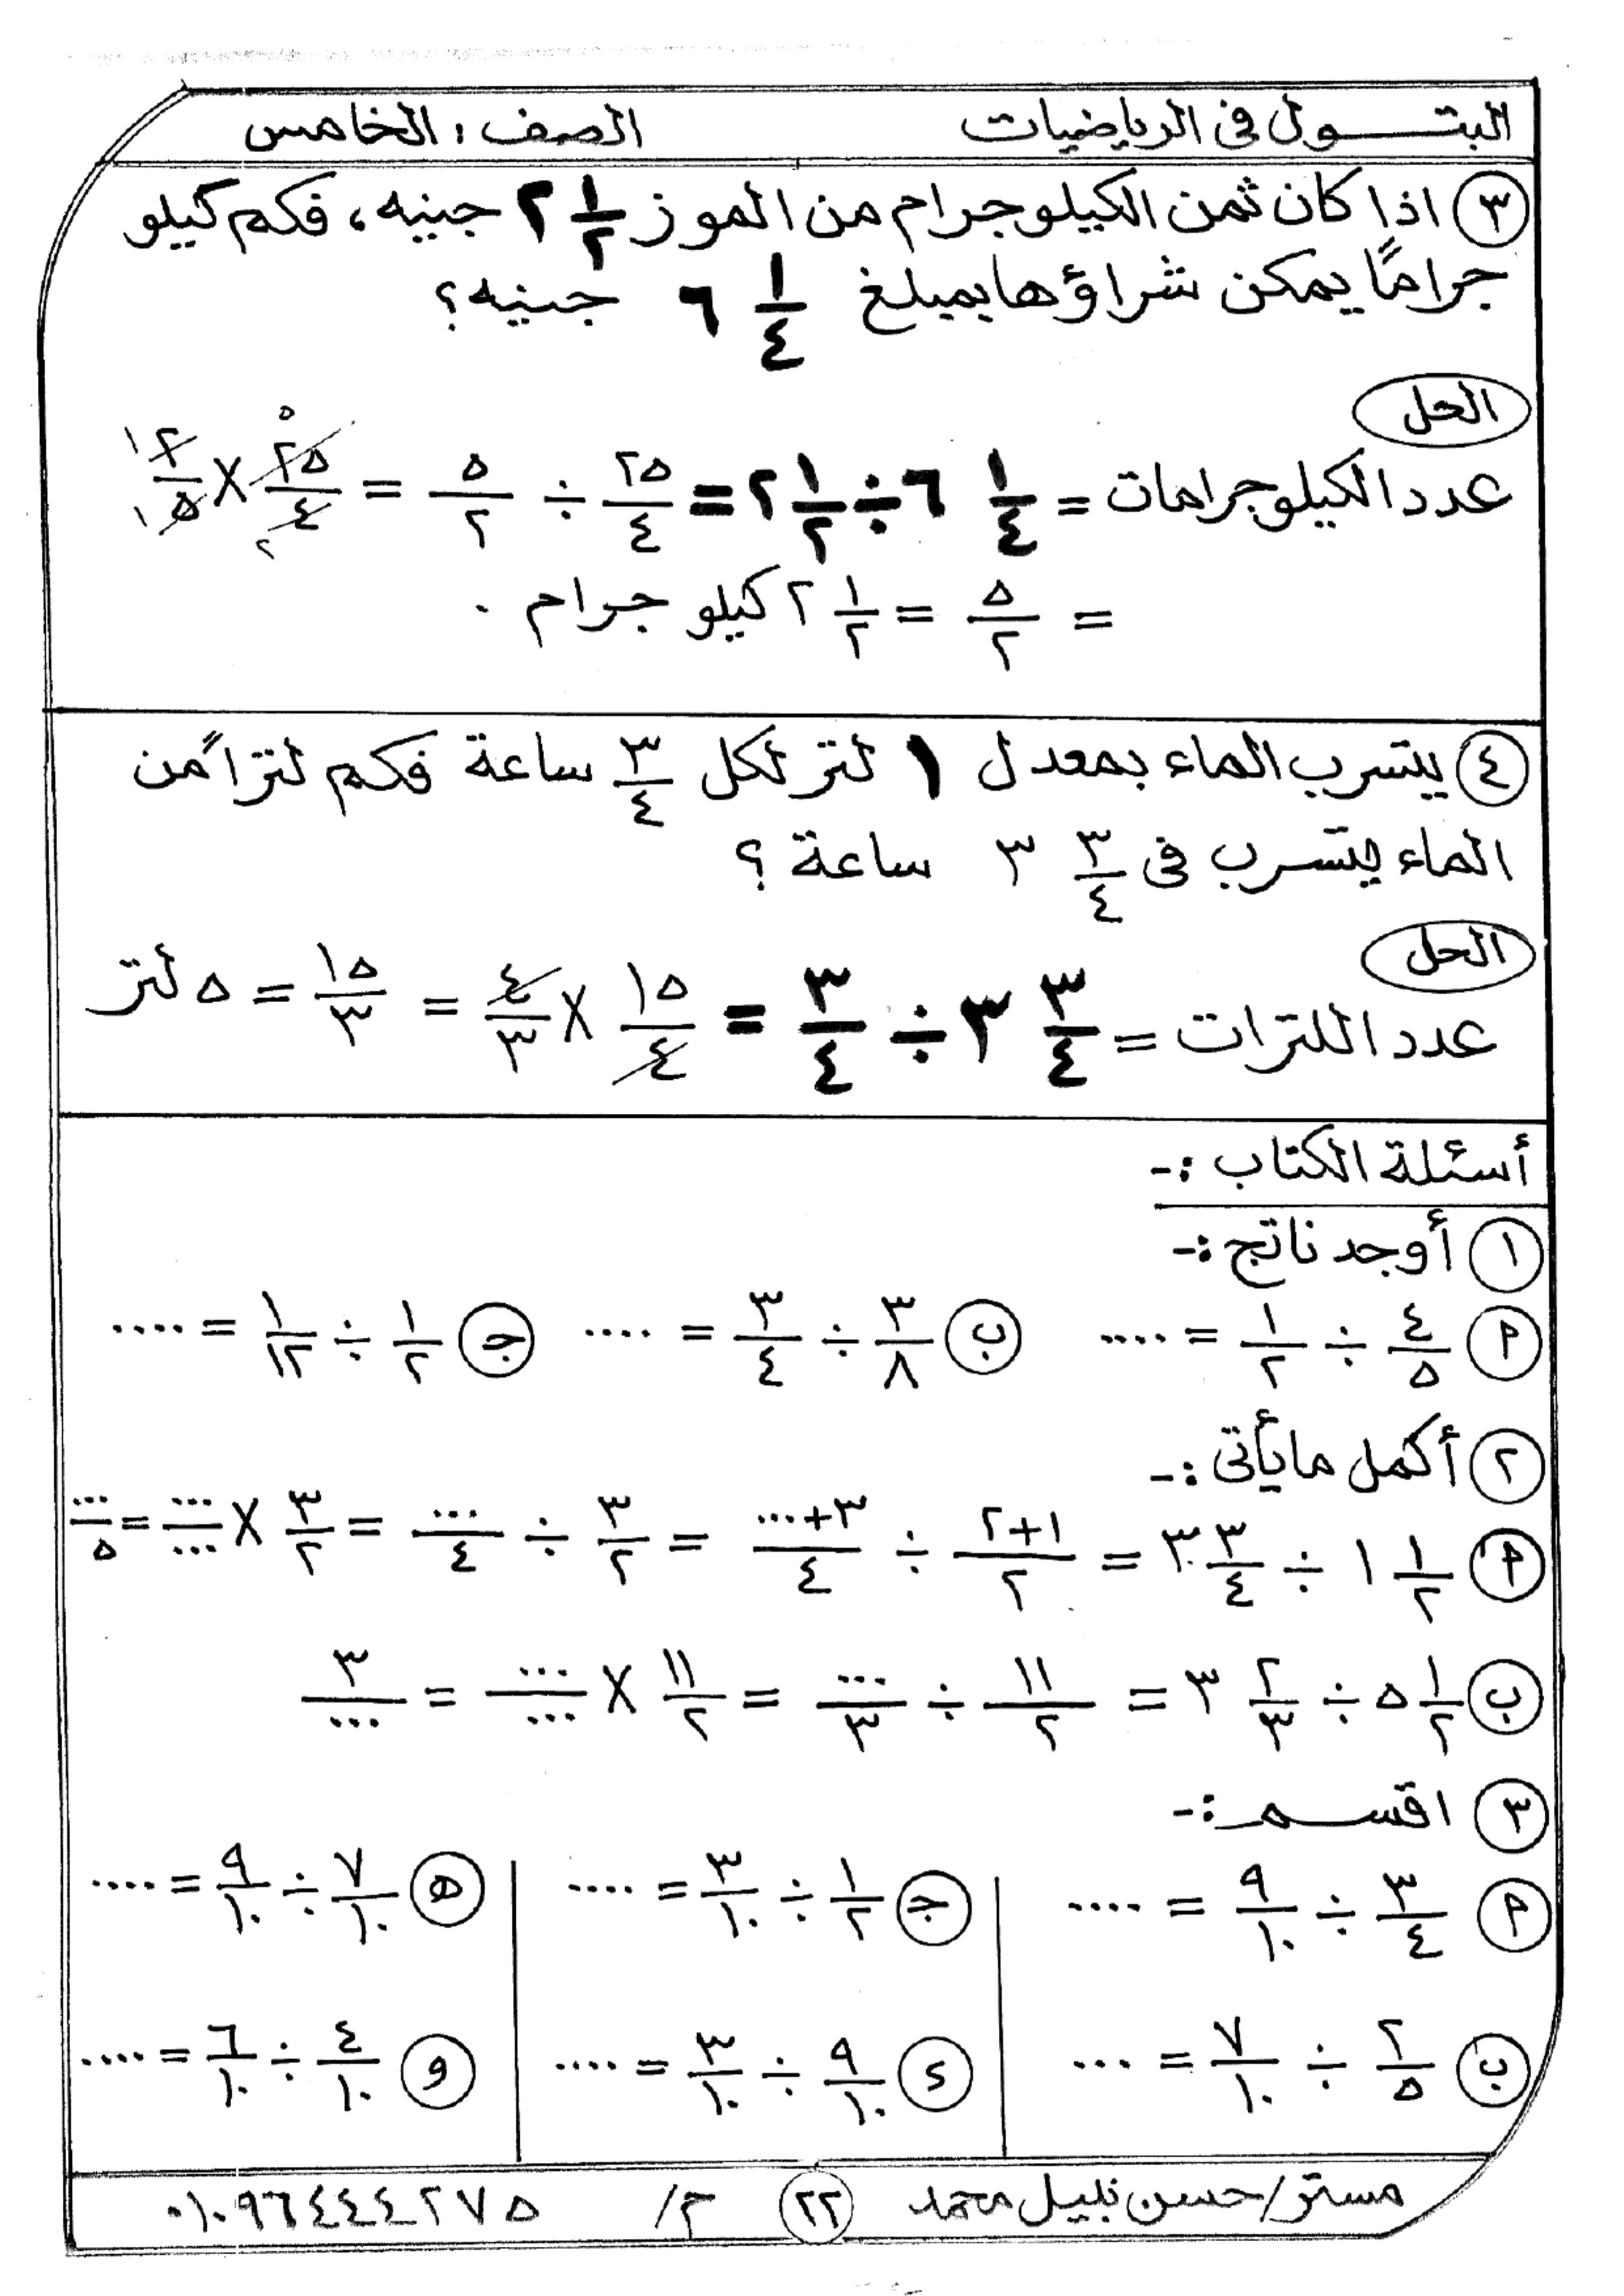 البتــول فى الرياضيات الصف : الخامس
٣ اذا كان ثمن الكيلو جرام من الموز ١/٢ ٢ جنيه، فكم كيلو
جرامًا يمكن شراؤها بمبلغ ١/٤ ٦ جنيه؟
الحل
عدد الكيلو جرامات = ١/٤ ٦ ÷ ١/٢ ٢ = ٢٥/٤ ÷ ٥/٢ = ٢٥/٤ × ٢/٥
= ٥/٢ = ١/٢ ٢ كيلو جرام .
٤ يتسرب الماء بمعدل ١ لتر لكل ٣/٤ ساعة فكم لترًا من
الماء يتسرب فى ٣/٤ ٣ ساعة ؟
الحل
عدد اللترات = ٣/٤ ٣ ÷ ٣/٤ = ١٥/٤ × ٤/٣ = ١٥/٣ = ٥ لتر
أسئلة الكتاب :-
١ أوجد ناتج :-
أ ٤/٥ ÷ ١/٢ = .... ب ٣/٨ ÷ ٣/٤ = .... ج ١/٢ ÷ ١/١٢ = ....
٢ أكمل مايأتى :-
أ ١/٢ ١ ÷ ٣/٤ ٣ = ٢+١/٢ ÷ ٣+.../٤ = ٣/٢ ÷ .../٤ = ٣/٢ × .../... = .../٥
ب ١/٢ ٥ ÷ ٢/٣ ٣ = ١١/٢ ÷ .../٣ = ١١/٢ × .../... = ٣/...
٣ اقسم :-
أ ٣/٤ ÷ ٩/١٠ = .... ج ١/٢ ÷ ٣/١٠ = .... ه ٧/١٠ ÷ ٩/١٠ = ....
ب ٢/٥ ÷ ٧/١٠ = ... د ٩/١٠ ÷ ٣/١٠ = .... و ٤/١٠ ÷ ٦/١٠ = ....
مستر/حسن نبيل محمد ٢٢ م/ ٠١٠٩٦٤٤٤٢٧٥